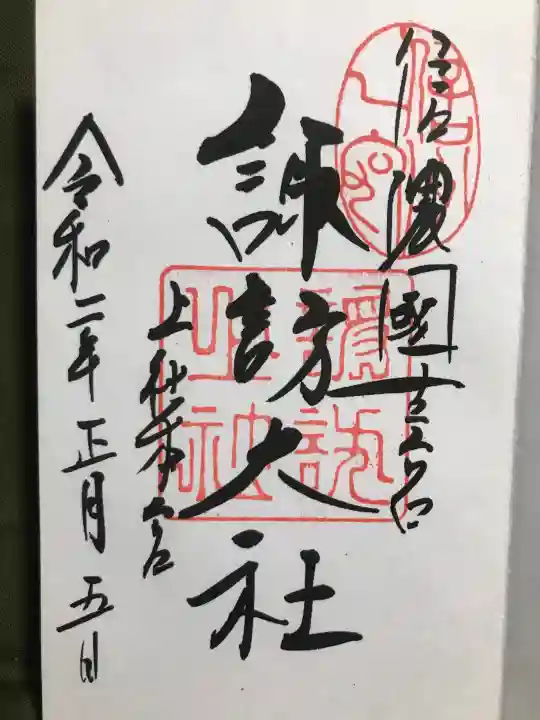 信濃國一之宮
諏訪大社
上社本宮
令和二年正月五日